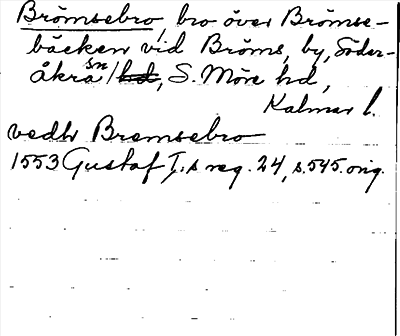 Brömsebro, bro över Brömse-
bäcken vid Bröms, by, Söder-
åkra sn, S. Möre hd,
Kalmar l.
vedh Bremsebro
1553 Gustaf I:s reg. 24, s. 545. orig.